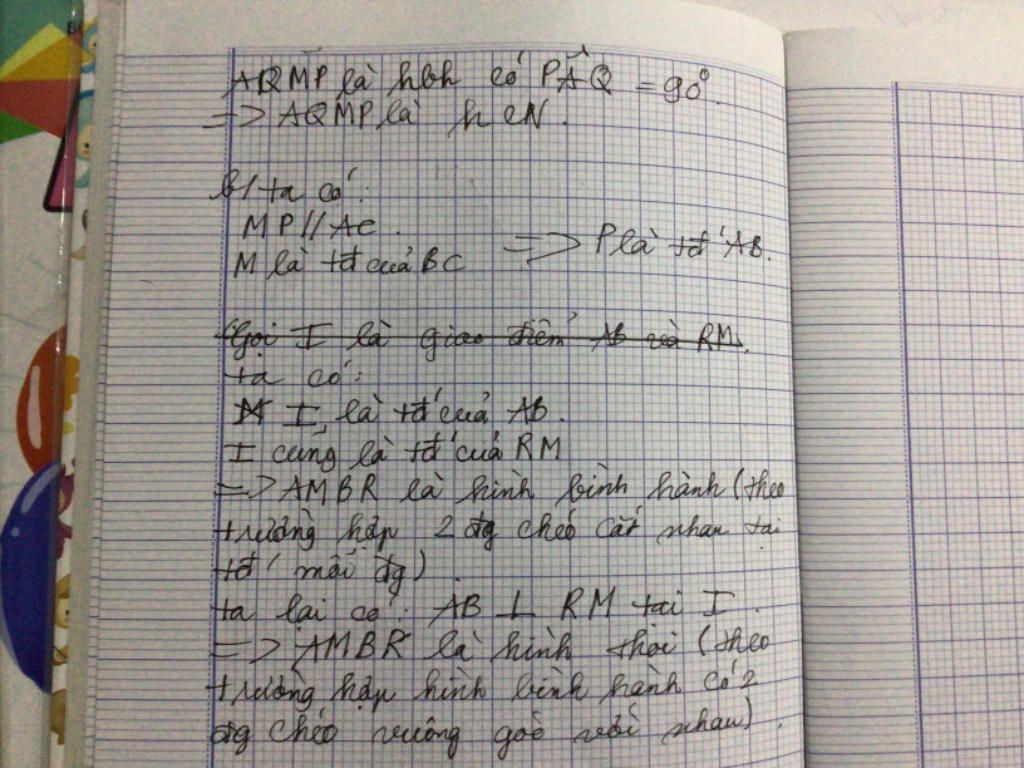 AQMP là hbh có PÂQ = 90°.
=> AQMP là h CN.
b/ ta có:
MP // AC.
M là tđ của BC => P là tđ AB.
Gọi I là giao điểm AB và RM.
ta có:
I là tđ của AB.
I cũng là tđ của RM
=> AMBR là hình bình hành (theo
trường hợp 2 đg chéo cắt nhau tại
tđ mỗi đg).
ta lại có: AB ⊥ RM tại I.
=> AMBR là hình thoi (theo
trường hợp hình bình hành có 2
đg chéo vuông góc với nhau).